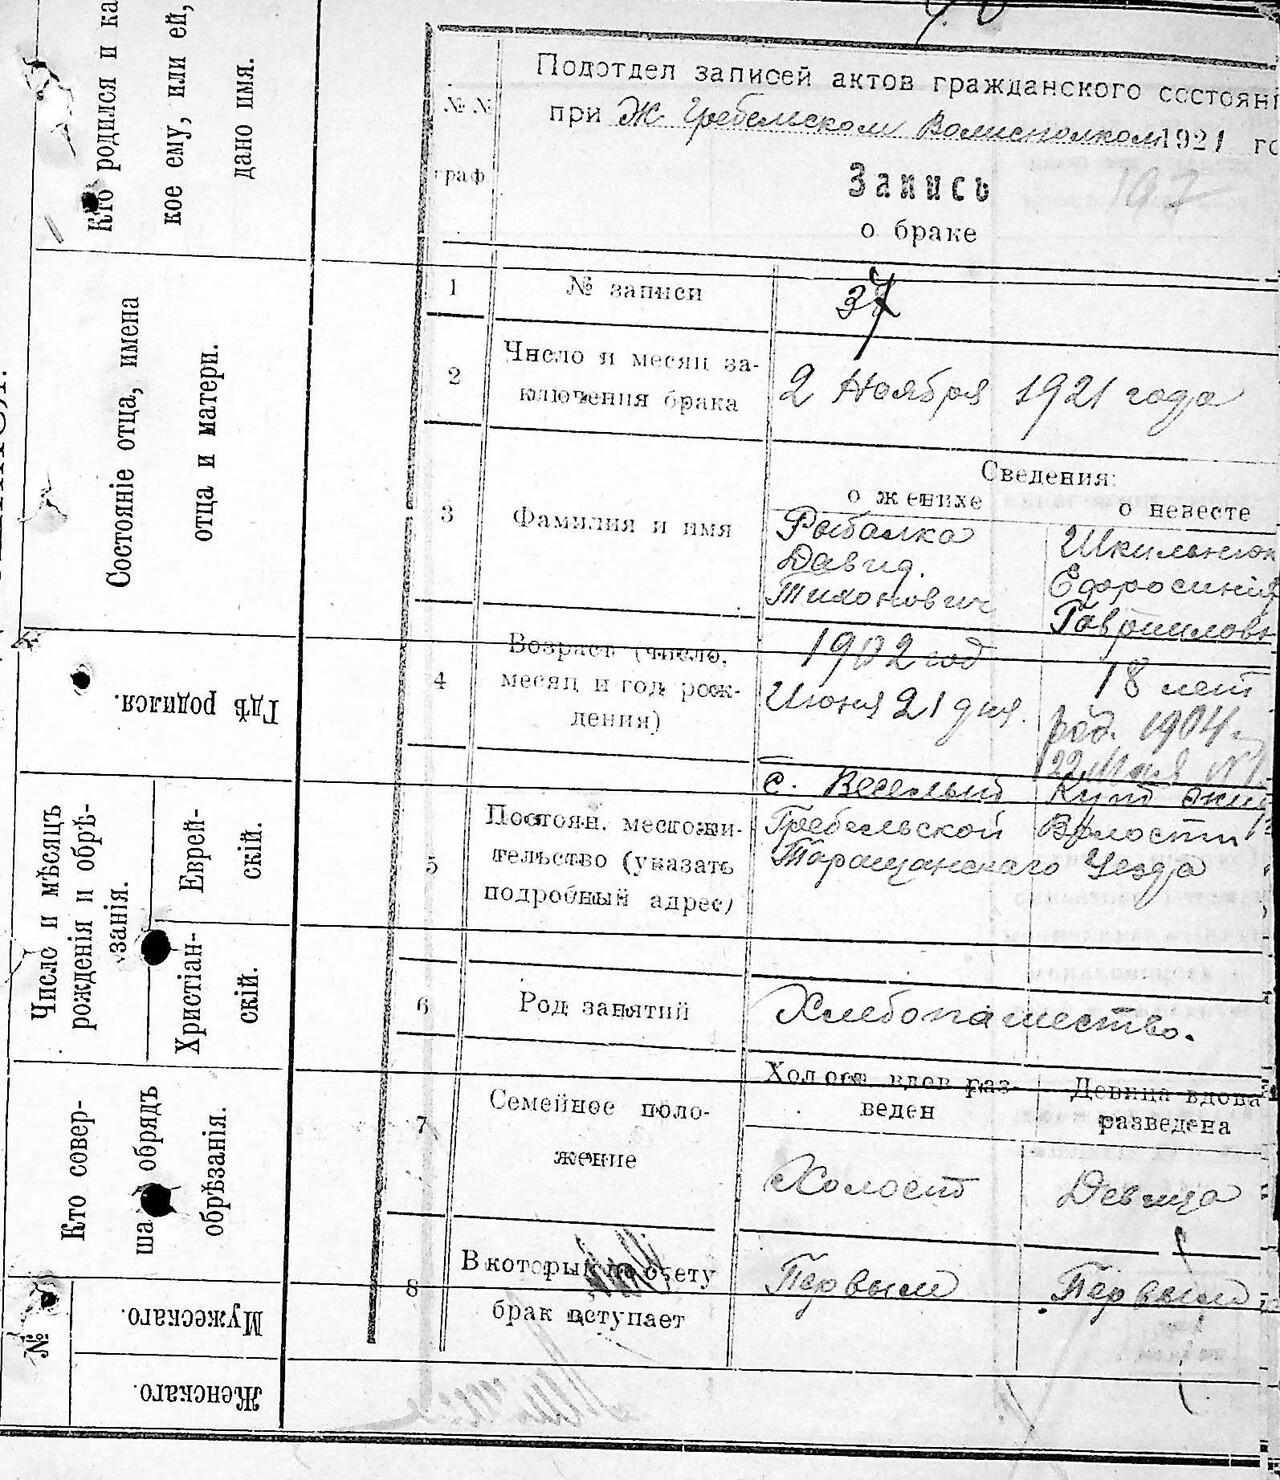 Кто родился и ка
кое ему, или ей,
дано имя.
Состояніе отца, имена
отца и матери.
Гдѣ родился.
Число и мѣсяцъ
рожденія и обрѣ-
занія.
Еврей-
скій.
Христіан-
скій.
Кто совер-
ша обрядъ
обрѣзанія.
№
Мужескаго.
Женскаго.
Подотдел записей актов гражданского состоян
при Ж Гребельском Волисполком 1921 го
№№
граф
Запись
о браке
1 № записи 37
2 Число и месяц за-
ключения брака
2 Ноября 1921 года
Сведения:
о женихе о невесте
3 Фамилия и имя
Рыбалка
Давид
Тихонович
Шкильнюк
Ефросиния
Гавриловн
4 Возраст (число,
месяц и год рож-
дения)
1902 год
Июня 21 дня.
18 лет
род. 1904
22 Мая
5 Постоян. местожи-
тельство (указать
подробный адрес)
с. Веселый Кут
Гребельской Волости
Таращанского Уезда
6 Род занятий Хлебопашество.
7 Семейное поло-
жение
Холост вдов раз-
веден
Девица вдова
разведена
Холост Девица
8 В который по счету
брак вступает
Первым Первым